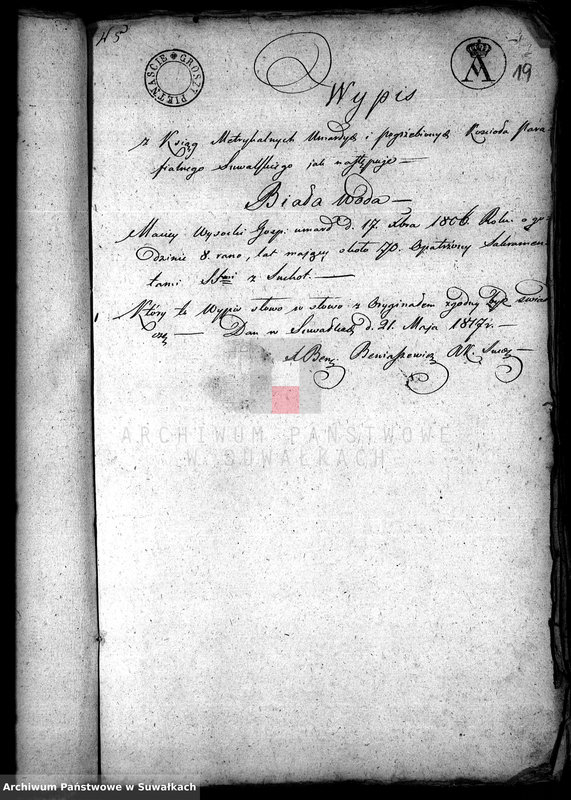 N 5
GROSZY PIĘTNAŚCIE
A
19
Wypis
z Ksiąg Metrykalnych Umarłych i pogrzebionych Kościoła Para=
fialnego Suwalskiego jak następuje —
Biała Woda —
Maciey Wysocki Gosp: umarł d. 17. Xbra 1806. Roku o go
dzinie 8. rano, lat maiący około 70. Opatrzony Sakramen
tami SSmi z Suchot. —
Który to Wypis słowo w słowo z Oryginałem zgodny być świad
czę — Dan w Suwałkach d. 21. Maja 1817 r. —
Beniaszewicz
ARCHIWUM PAŃSTWOWE
W SUWAŁKACH
Archiwum Państwowe w Suwałkach